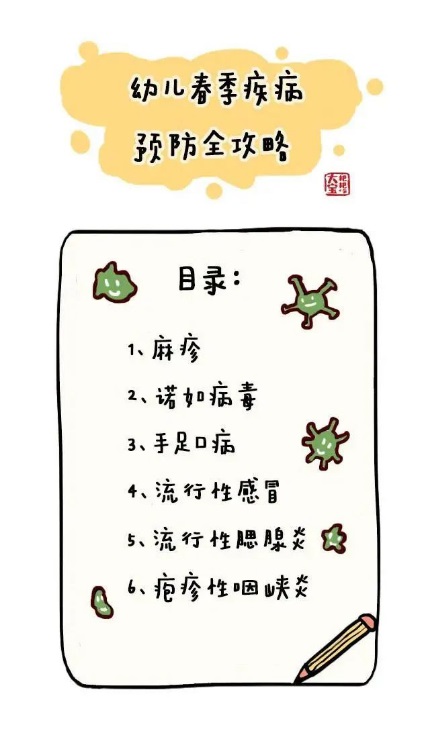 幼儿春季疾病
预防全攻略
目录：
1、麻疹
2、诺如病毒
3、手足口病
4、流行性感冒
5、流行性腮腺炎
6、疱疹性咽峡炎